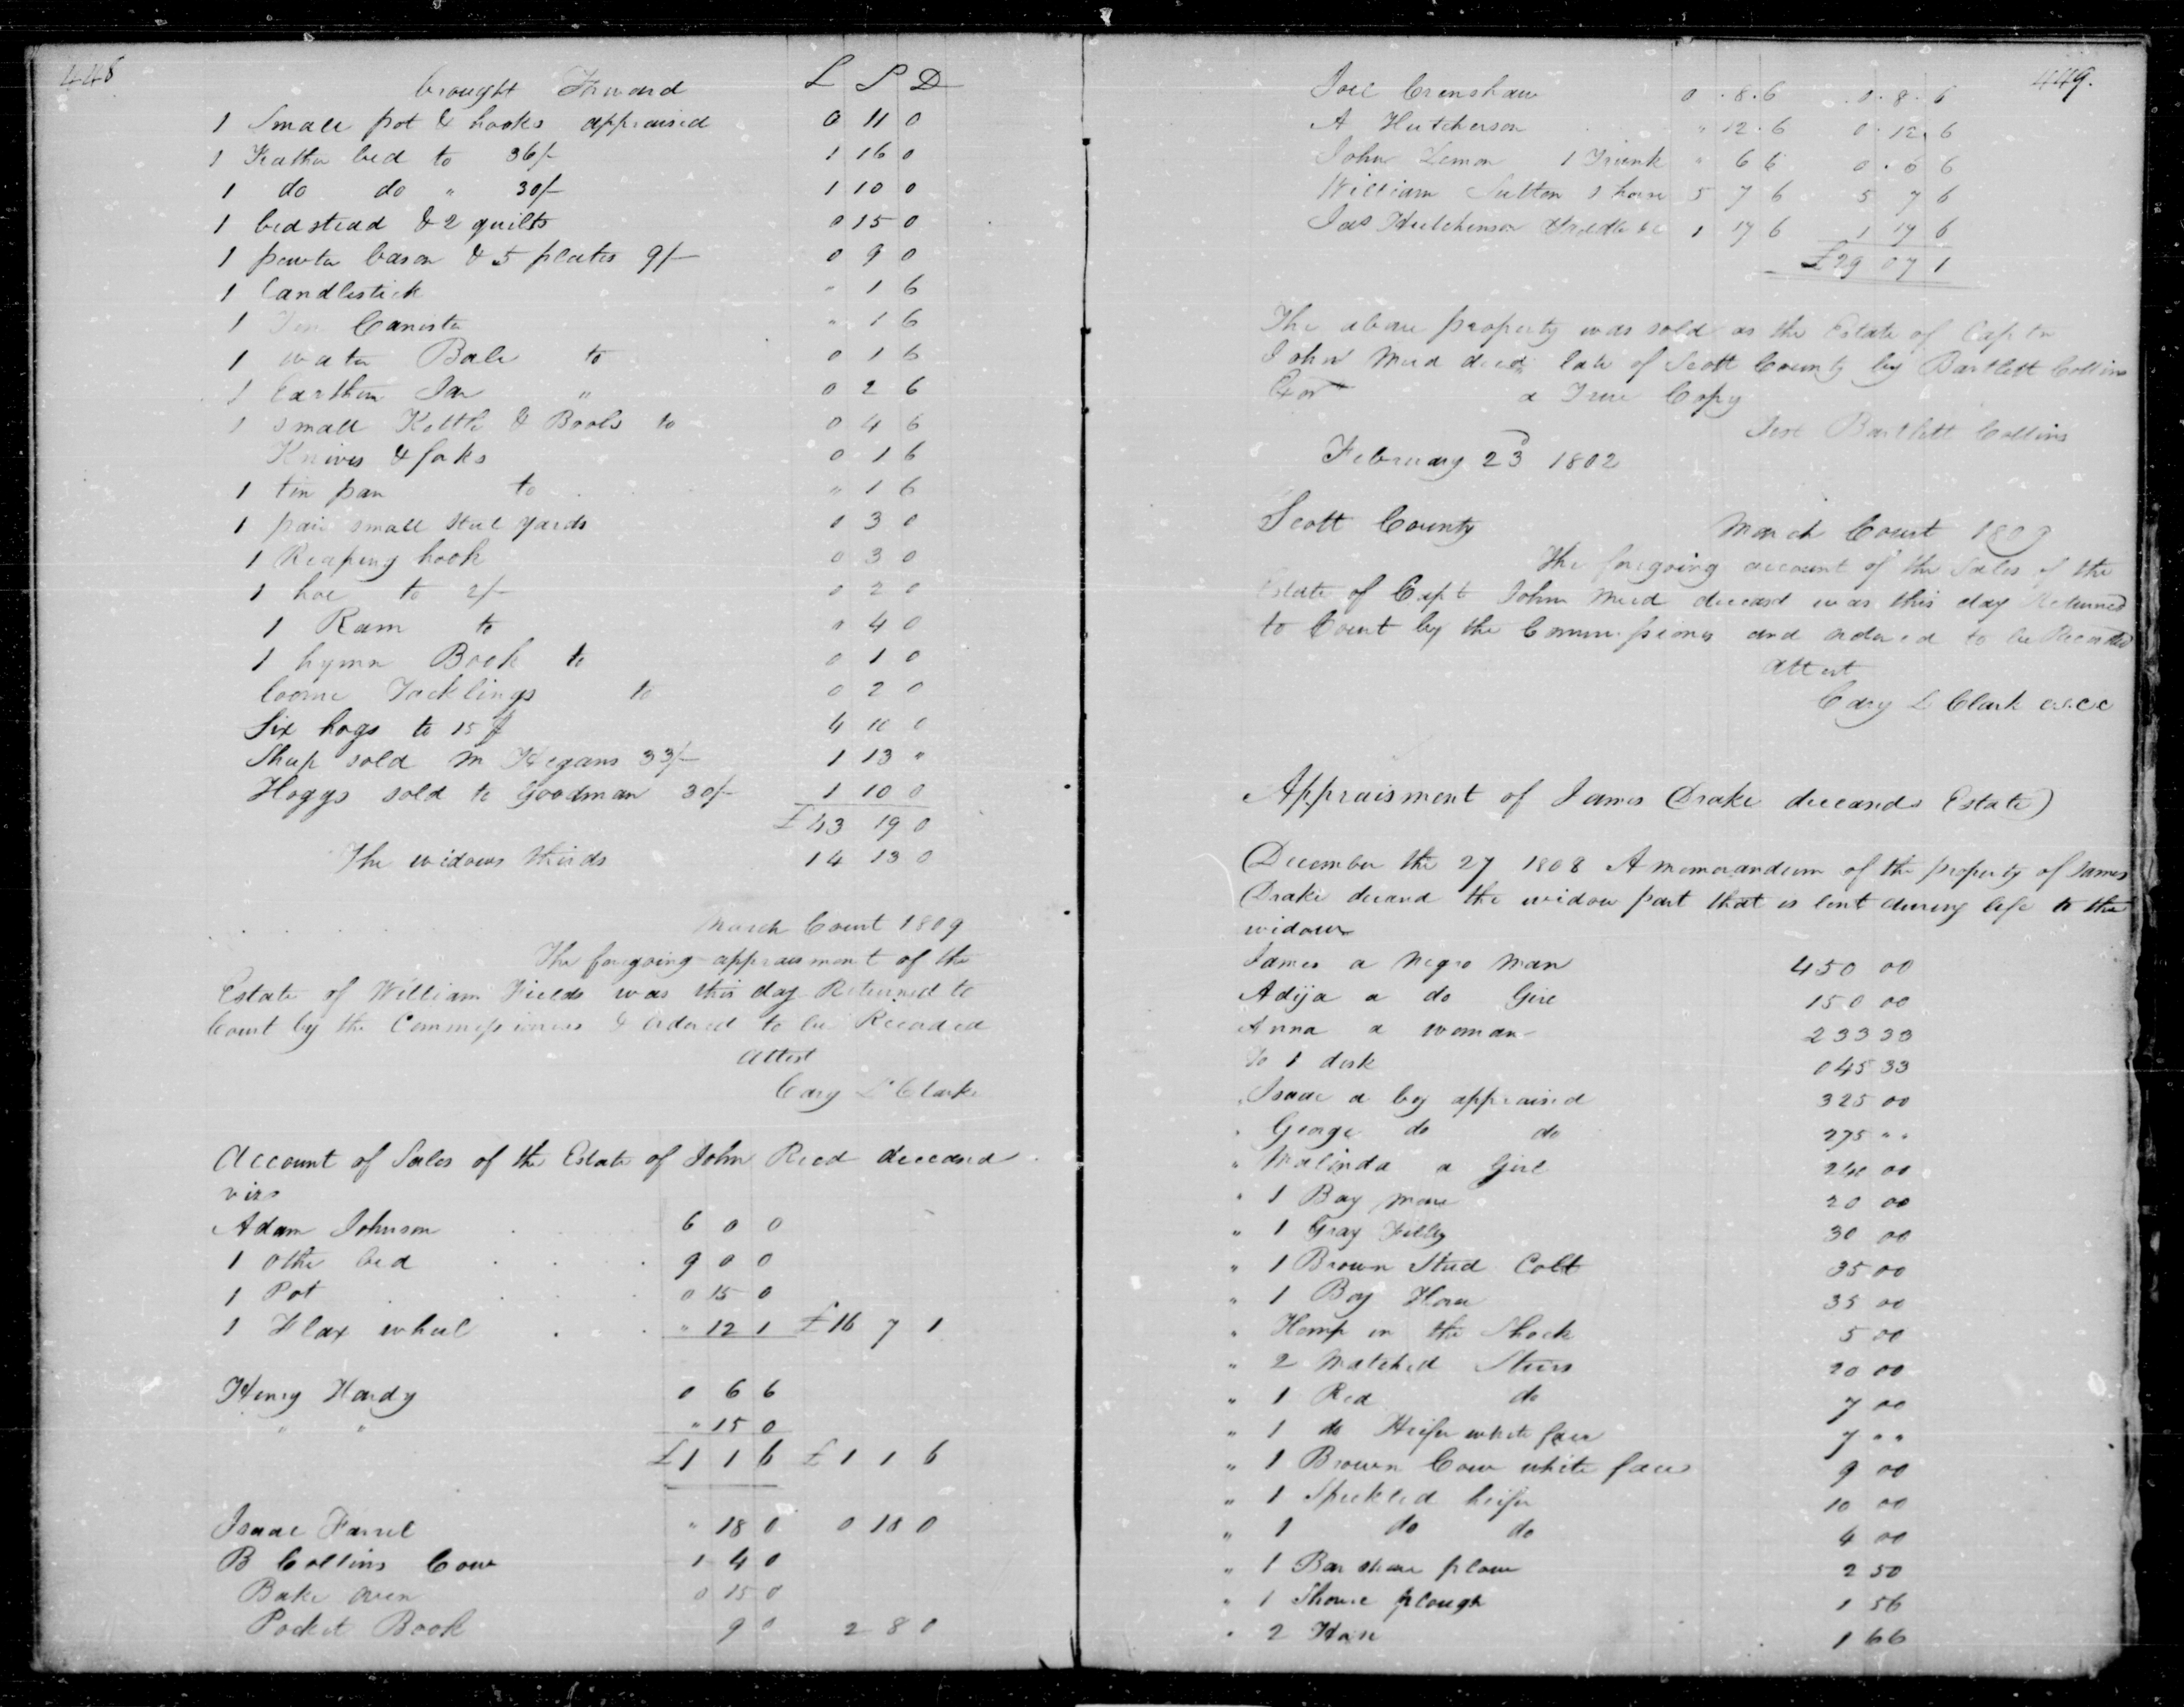 448
brought Forward L S D
1 Small pot & hooks appraised 0 11 0
1 Feather bed to 36/- 1 16 0
1 do do " 30/- 1 10 0
1 bedstead & 2 quilts 0 15 0
1 pewter bason & 5 plates 9/- 0 9 0
1 Candlestick " 1 6
1 Tin Canister " 1 6
1 water Bale to 0 1 6
1 Earthen Jar " 0 2 6
1 small Kettle & Books to 0 4 6
Knives & forks 0 1 6
1 tin pan to " 1 6
1 pair small Steel yards 0 3 0
1 Reaping hook 0 3 0
1 hoe to 2/- 0 2 0
1 Ram to " 4 0
1 hymn Book to 0 1 0
loome Tacklings to 0 2 0
Six hogs to 15 4 10 0
Sheep sold M Hegans 33/- 1 13 "
Hoggs sold to Goodman 30/- 1 10 0
£43 19 0
The widows thirds 14 13 0
March Court 1809
The foregoing appraisment of the
Estate of William Fields was this day Returned to
Court by the Commissioners & ordered to be Recorded
Attest
Cary L Clarke
Account of Sales of the Estate of John Reed deceasd
vizs
Adam Johnson 6 0 0
1 other bed 9 0 0
1 Pot 0 15 0
1 Flax wheel " 12 1 £16 7 1
Henry Hardy 0 6 6
" " " 15 0
£1 1 6 £1 1 6
Isaac Farrel " 18 0 0 18 0
B Collins Cow 1 4 0
Bake oven 0 15 0
Pocket Book 9 0 2 8 0
449.
Joel Crenshaw 0 . 8 . 6 . 0 . 8 . 6
A Hutcherson " 12 . 6 0 . 12 . 6
John Lemon 1 Trunk " 6 6 0 . 6 6
William Sutton 1 horse 5 7 6 5 7 6
Jas Hutchinson 1 17 6 1 17 6
£29 07 1
The above property was sold as the Estate of Captn
John Reed decd late of Scott County by Bartlett Collins
Exor a True Copy
Test Bartlett Collins
February 23d 1802
Scott County March Court 1809
The foregoing account of the Sales of the
Estate of Capt John Reed deceasd was this day Returned
to Court by the Commissioners and ordered to be Recorded
Attest
Cary L Clark c.s.c.c
Appraisment of James Drake deceasds Estate)
December the 27 1808 A memorandum of the property of James
Drake deceasd the widow part that is lent during life to the
widow
James a Negro Man 450 00
Adija a do Girl 150 00
Anna a woman 233 33
To 1 desk 045 33
" Isaac a boy appraised 325 00
" George do do 275 " "
" Malinda a Girl 240 00
" 1 Bay Mare 20 00
" 1 Gray Filley 30 00
" 1 Brown Stud Colt 35 00
" 1 Bay Horse 35 00
" Hemp in the Shock 5 00
" 2 Matched Steers 20 00
" 1 Red do 7 00
" 1 do Heifer white face 7 " "
" 1 Brown Cow white face 9 00
" 1 Speckled heifer 10 00
" 1 do do 4 00
" 1 Bar share plow 2 50
" 1 Shovel plough 1 56
" 2 Hoes 1 66